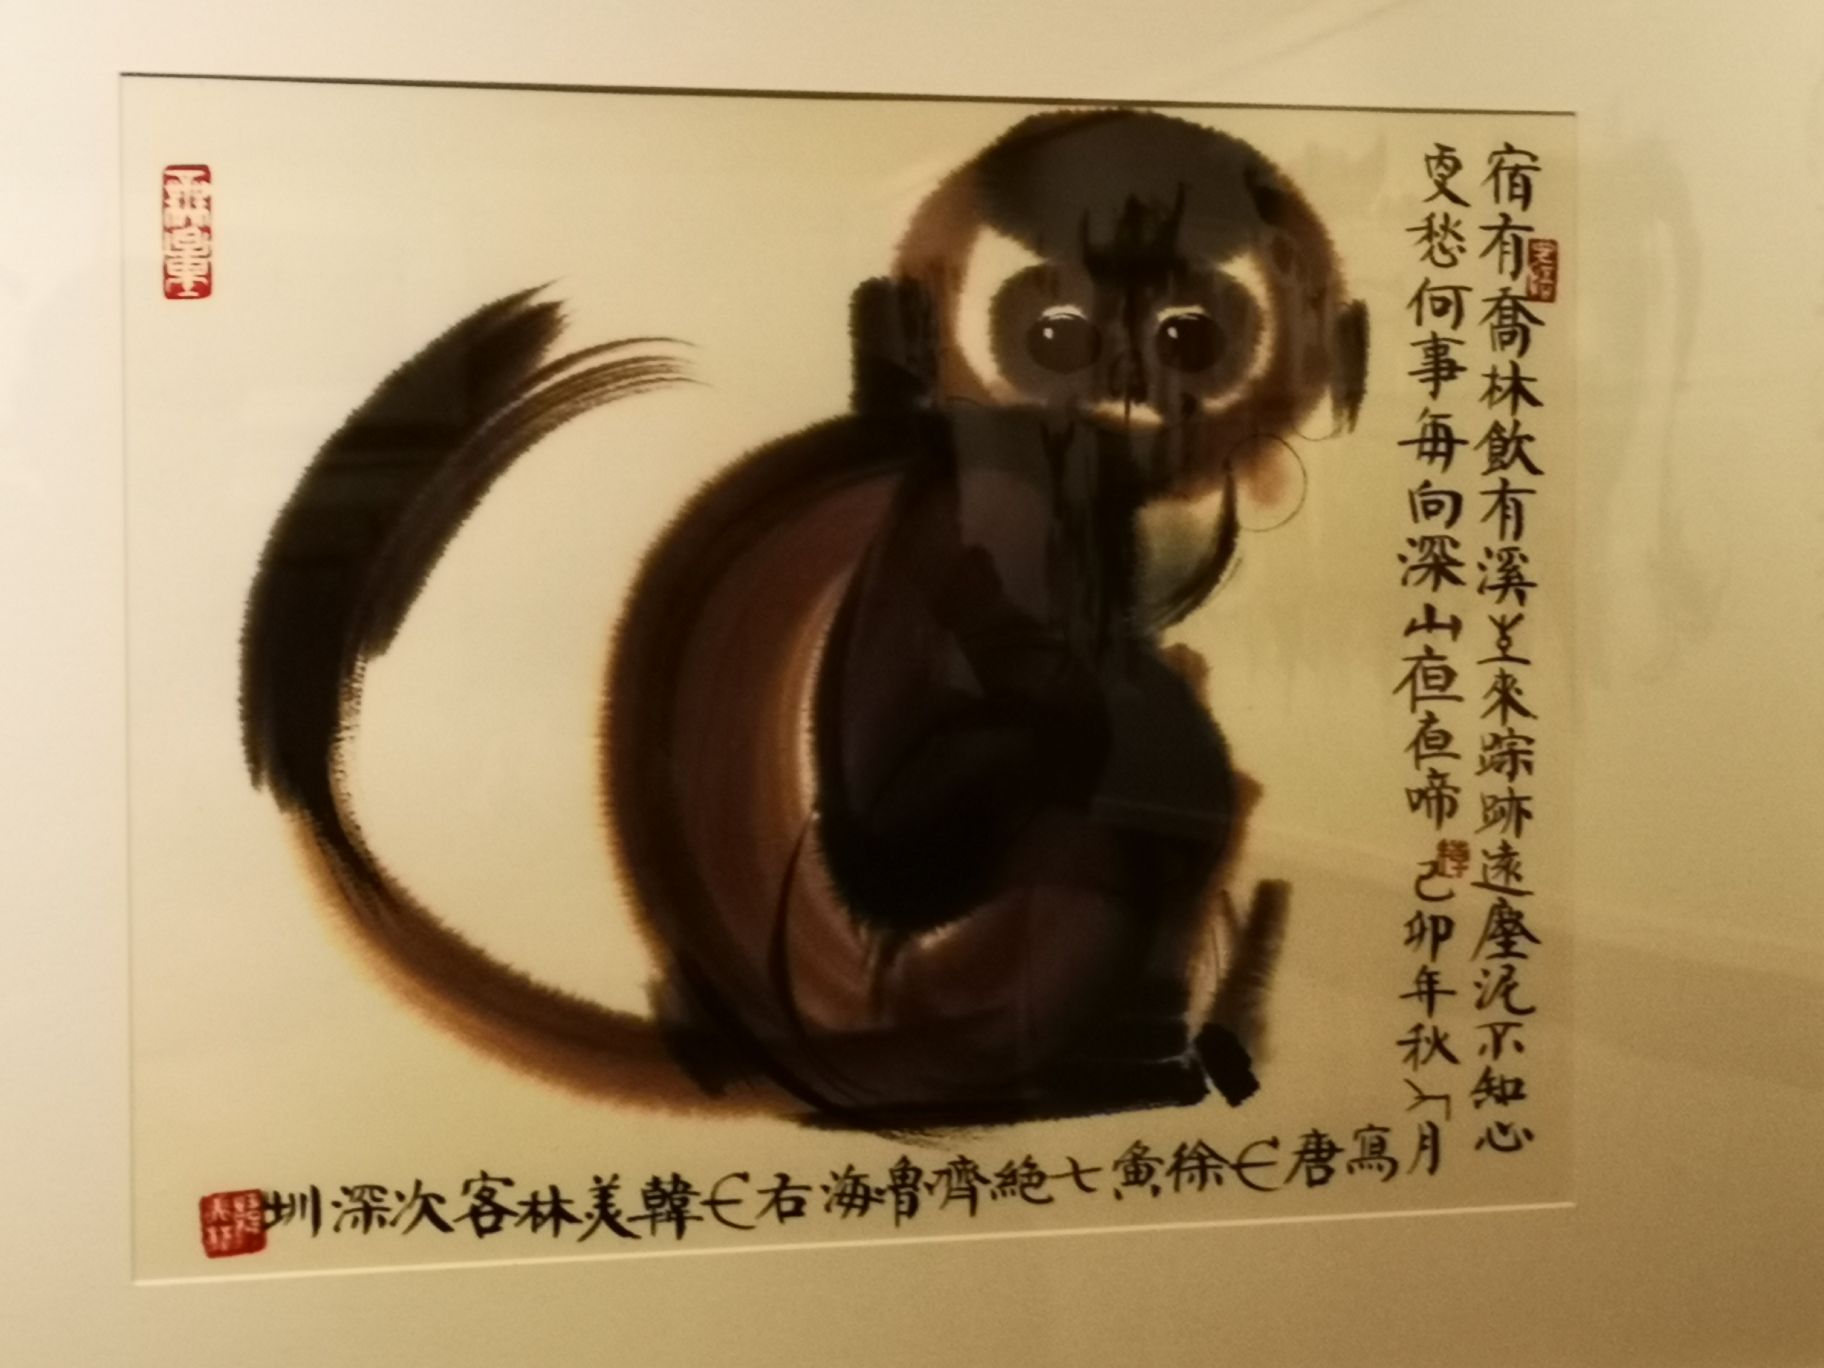 宿有喬林飲有溪生來踪跡遠塵泥不知心
更愁何事每向深山亱亱啼 己卯年秋八月
寫唐人徐夤七絕齊魯海右人韓美林客次深圳